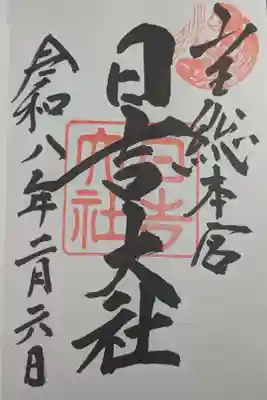 山王総本宮
日吉大社
日吉大社
令和八年二月六日